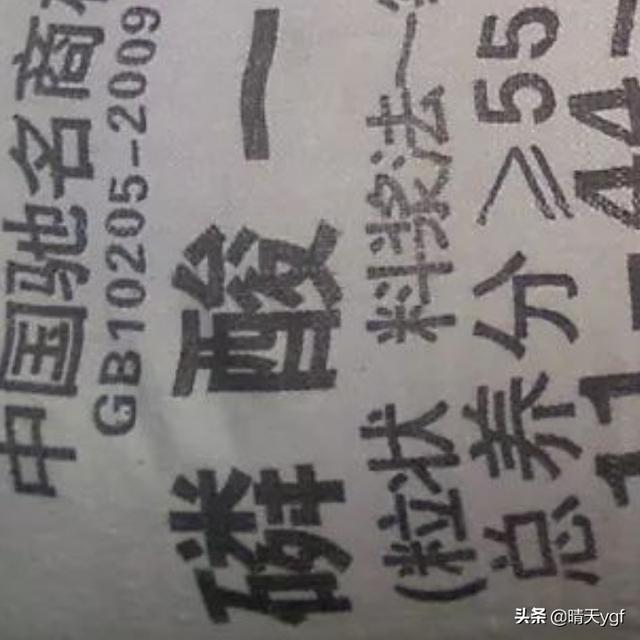 中国驰名商
GB10205-2009
磷酸一
(粒状 料浆法
总养分≥55
11-44-
头条 @晴天ygf